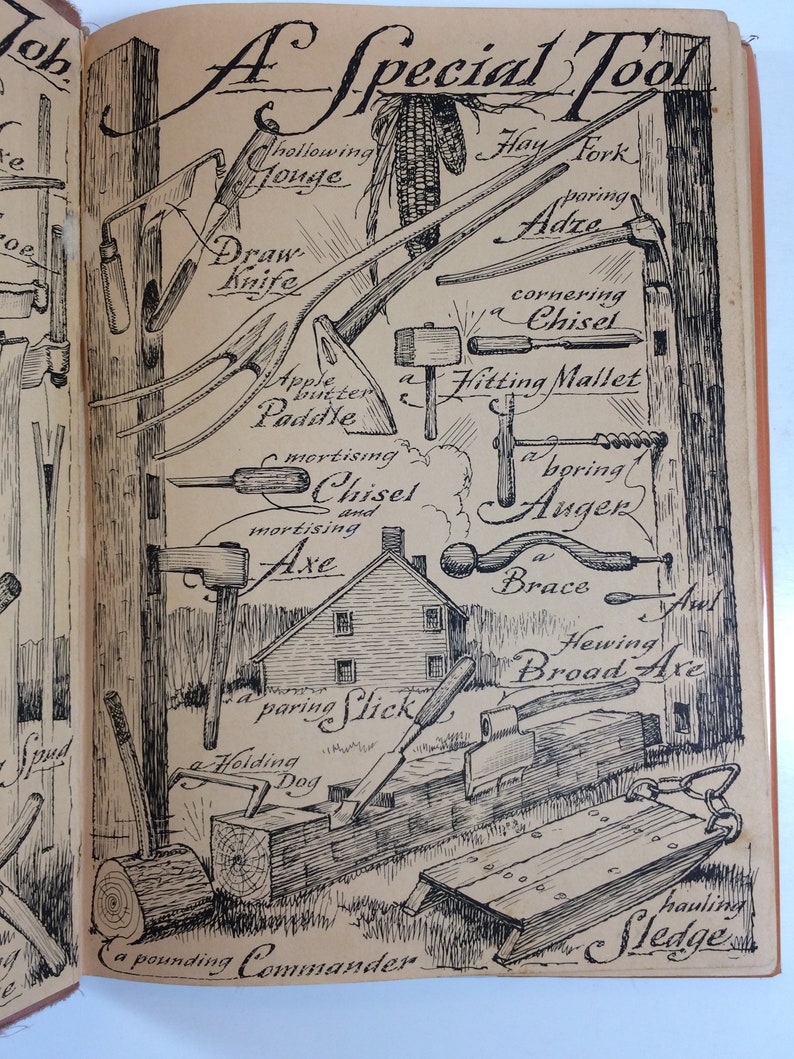 Job
A Special Tool
hollowing
Gouge
Hay Fork
paring
Adze
Draw-
Knife
cornering
a Chisel
Apple
butter
Paddle
a Hitting Mallet
mortising
Chisel
and
mortising
Axe
a boring
Auger
a
Brace
Awl
Hewing
Broad Axe
a
paring Slick
a Holding
Dog
Spud
hauling
Sledge
a pounding Commander